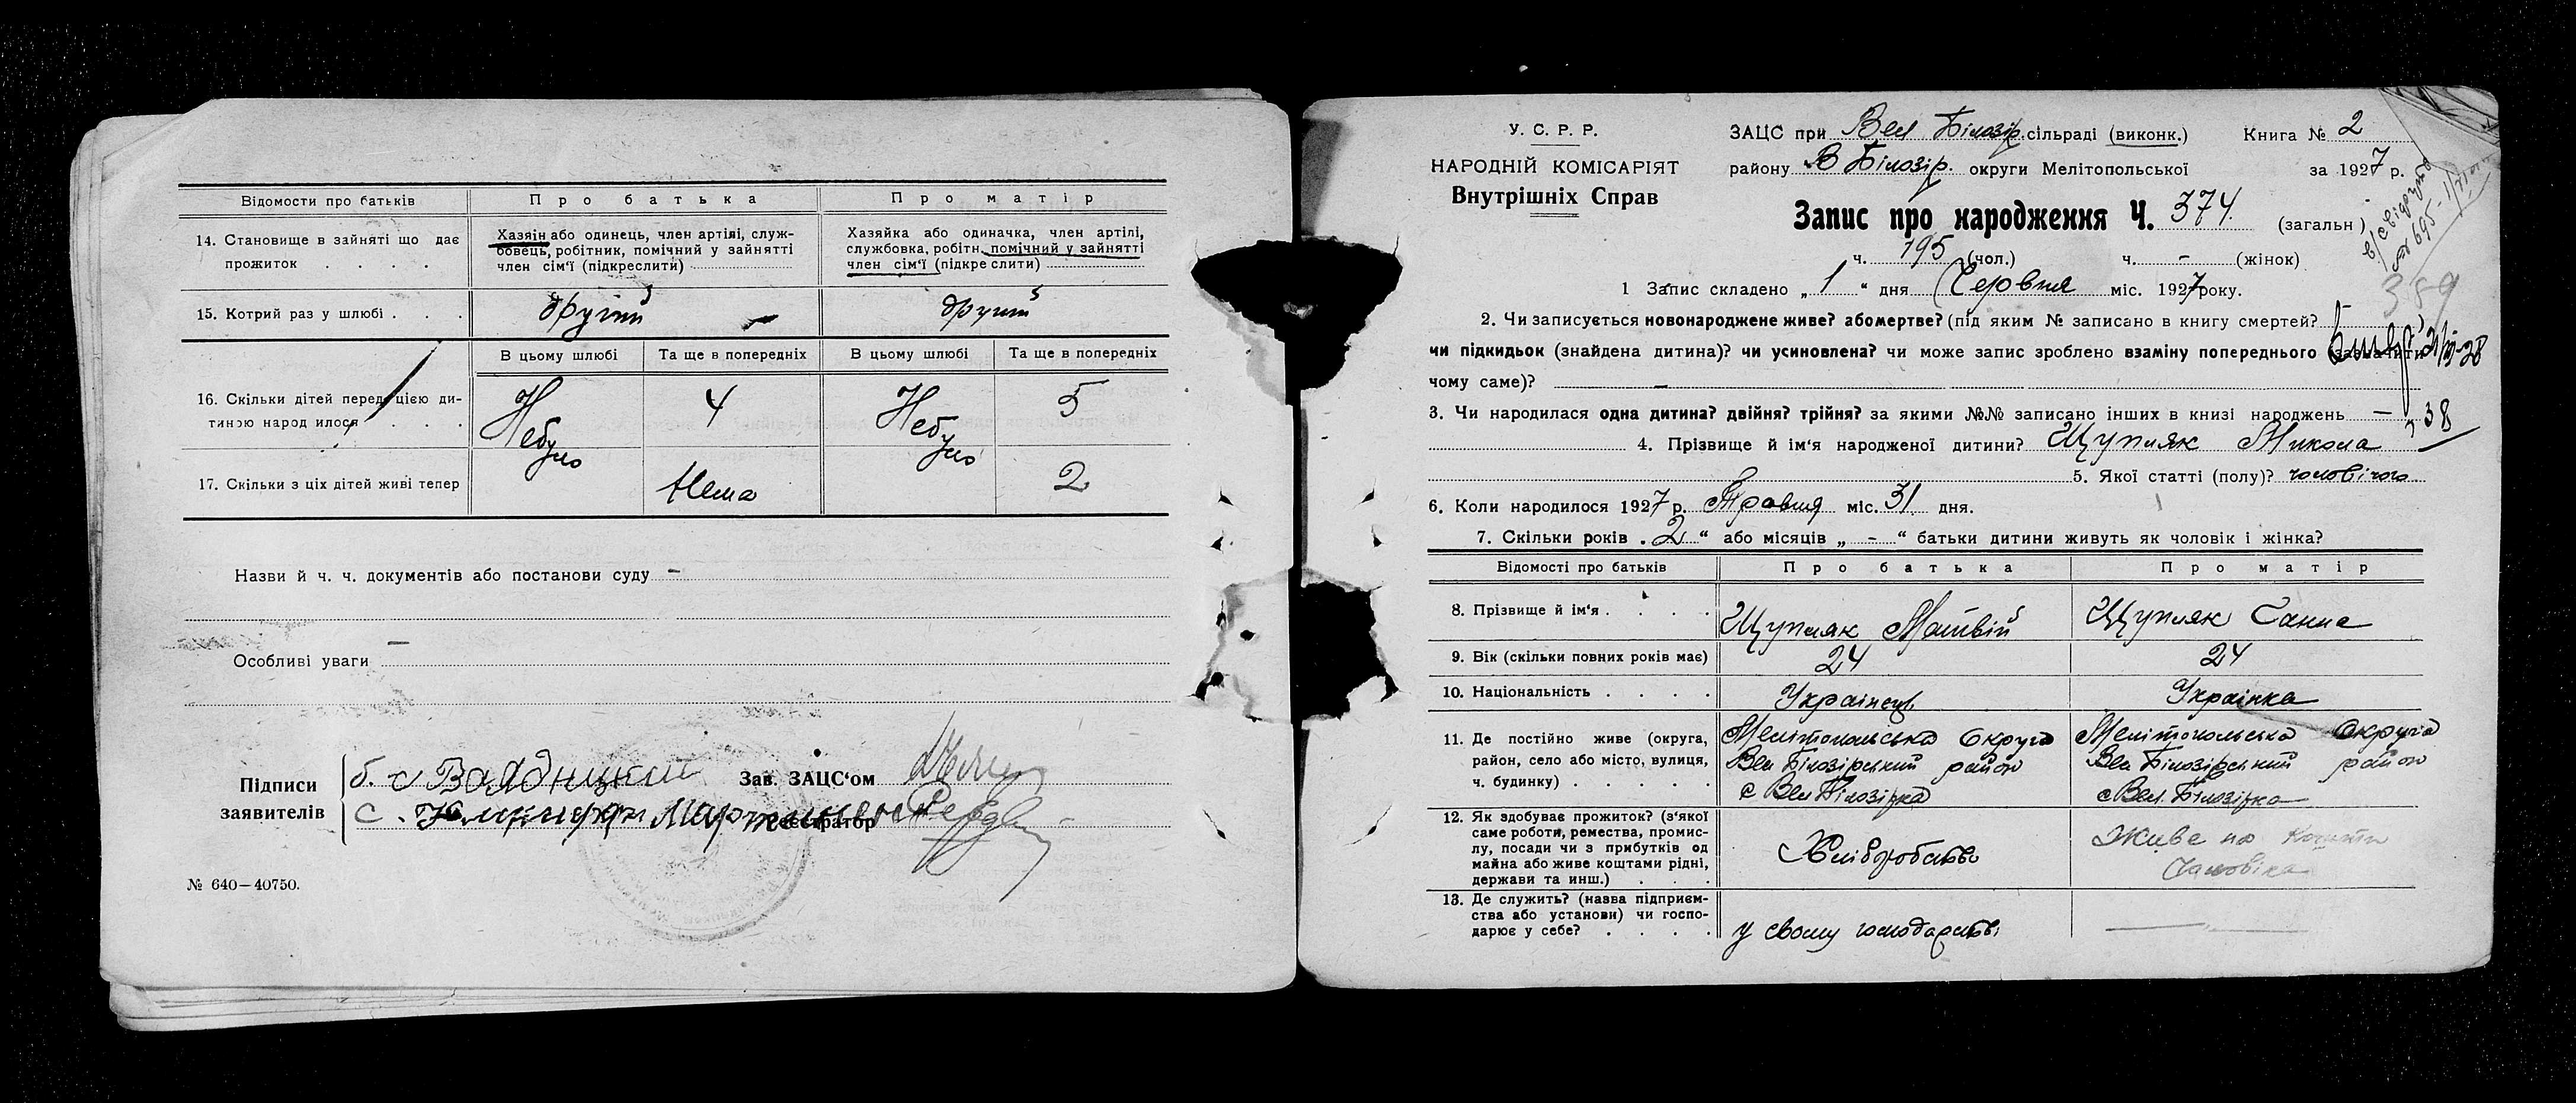 Відомости про батьків Про батька Про матір
14. Становище в зайняті що дає прожиток . . . .
Хазяїн або одинець, член артілі, служ-
бовець, робітник, помічний у зайнятті
член сім'ї (підкреслити)
Хазяйка або одиначка, член артілі,
службовка, робітн. помічний у зайнятті
член сім'ї (підкреслити)
15. Котрий раз у шлюбі . . . другий другий
В цьому шлюбі Та ще в попередніх В цьому шлюбі Та ще в попередніх
16. Скільки дітей перед цією ди-
тиною народилося . . . Небуло 4 Небуло 5
17. Скільки з ціх дітей живі тепер Нема 2
Назви й ч. ч. документів або постанови суду —
Особливі уваги —
Підписи заявителів
б.
с.
Зав. ЗАЦС'ом
Реєстратор
№ 640—40750.
У. С. Р. Р.
НАРОДНІЙ КОМІСАРІЯТ
Внутрішніх Справ
ЗАЦС при Вел Білозір. сільраді (виконк.) Книга № 2
району В Білозір. округи Мелітопольської за 1927 р.
Запис про народження Ч. 374 (загальн.)
ч. 195 (чол.) ч. - (жінок)
359
1 Запис складено „ 1 “ дня Червня міс. 1927 року.
2. Чи записується новонароджене живе? або мертве? (під яким № записано в книгу смертей?
чи підкидьок (знайдена дитина)? чи усиновлена? чи може запис зроблено взаміну попереднього (зазначити
чому саме)? —
3. Чи народилася одна дитина? двійня? трійня? за якими №№ записано інших в книзі народжень — 38
4. Прізвище й ім'я народженої дитини? Щупляк Микола
5. Якої статті (полу)? чоловічого
6. Коли народилося 1927 р. Травня міс. 31 дня.
7. Скільки років „ 2 “ або місяців „ - “ батьки дитини живуть як чоловік і жінка?
Відомості про батьків Про батька Про матір
8. Прізвище й ім'я . . . . Щупляк Матвій Щупляк Ганна
9. Вік (скільки повних років має) 24 24
10. Національність . . . . Українець Українка
11. Де постійно живе (округа,
район, село або місто, вулиця,
ч. будинку) . . . . .
Мелітопольська Округа
Вел Білозірський район
с Вел Білозірка
Мелітопольська Округа
Вел Білозірський район
с Вел. Білозірка
12. Як здобуває прожиток? (з'якої
саме роботи, ремества, промис-
лу, посади чи з прибутків од
майна або живе коштами рідні,
держави та инш.) . . .
Хліборобство
Живе на кошти
Чоловіка
13. Де служить? (назва підприєм-
ства або установи) чи госпо-
дарює у себе? . . . .
у свому господарстві